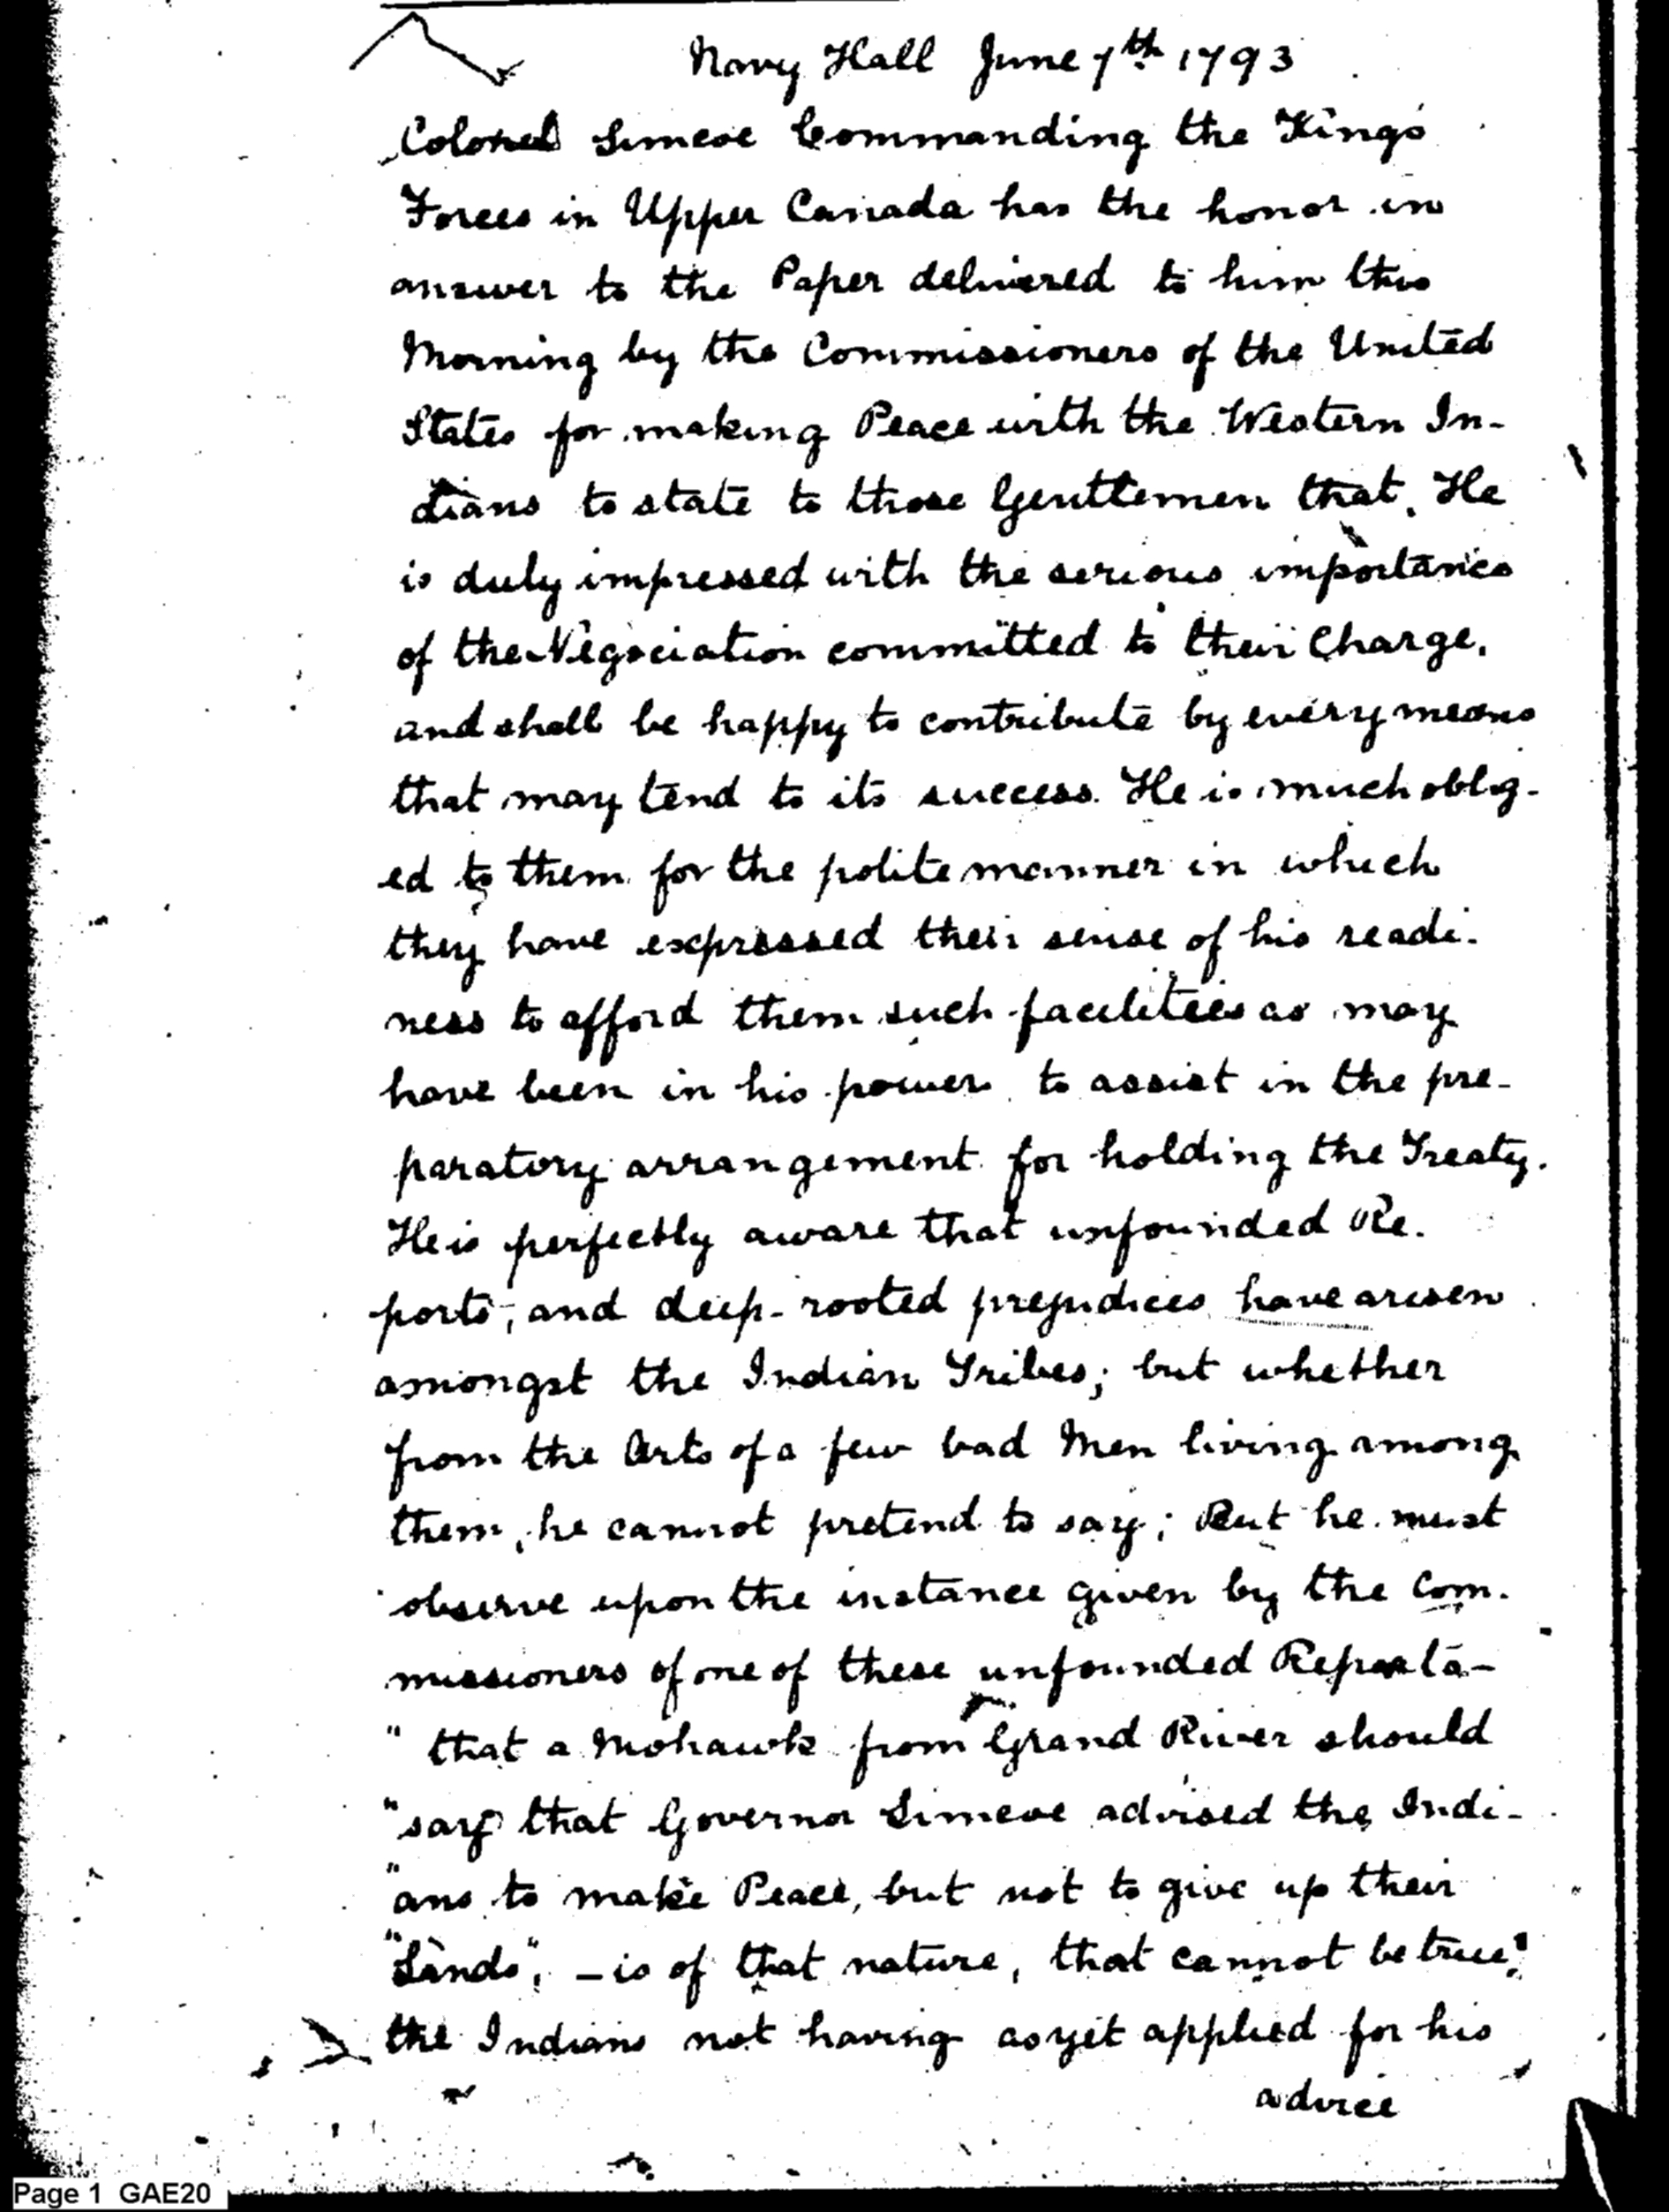 Navy Hall June 7th 1793
Colonel Simcoe Commanding the Kings
Forces in Upper Canada has the honor in
answer to the Paper delivered to him this
Morning by the Commissioners of the United
States for making Peace with the Western In-
dians to state to those Gentlemen that, He
is duly impressed with the serious importance
of the Negociation committed to their Charge,
and shall be happy to contribute by every means
that may tend to its success. He is much oblig-
ed to them for the polite manner in which
they have expressed their sense of his readi-
ness to afford them such facilities as may
have been in his power to assist in the pre-
paratory arrangement for holding the Treaty.
He is perfectly aware that unfounded Re-
ports, and deep-rooted prejudices have arisen
amongst the Indian Tribes; but whether
from the Arts of a few bad Men living among
them, he cannot pretend to say; But he must
observe upon the instance given by the Com-
missioners of one of these unfounded Reports-
" that a Mohawk from Grand River should
"say that Governor Simcoe advised the Indi-
"ans to make Peace, but not to give up their
"Lands", - is of that nature, that cannot be true,
the Indians not having as yet applied for his
advice
Page 1 GAE20